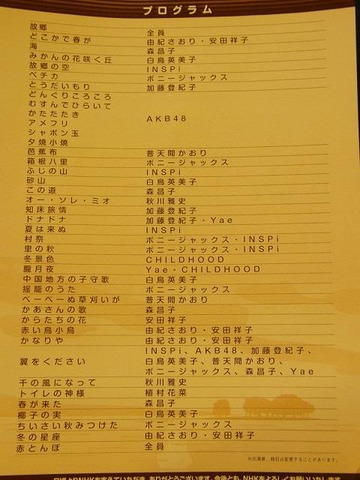 プログラム
故郷 全員
どこかで春が 由紀さおり・安田祥子
海 森昌子
みかんの花咲く丘 白鳥英美子
故郷の空 INSPi
ペチカ ボニージャックス
とうだいもり 加藤登紀子
どんぐりころころ
むすんでひらいて
かたたたき
アメフリ AKB48
シャボン玉
夕焼小焼
芭蕉布 普天間かおり
箱根八里 ボニージャックス
ふじの山 INSPi
砂山 白鳥英美子
この道 森昌子
オー・ソレ・ミオ 秋川雅史
知床旅情 加藤登紀子
ドナドナ 加藤登紀子・Yae
夏は来ぬ INSPi
村祭 ボニージャックス・INSPi
里の秋 ボニージャックス・INSPi
冬景色 CHILDHOOD
朧月夜 Yae・CHILDHOOD
中国地方の子守歌 白鳥英美子
揺籠のうた ボニージャックス
べーべーぬ草刈いが 普天間かおり
かあさんの歌 森昌子
からたちの花 安田祥子
赤い鳥小鳥 由紀さおり・安田祥子
かなりや 由紀さおり・安田祥子
INSPi、AKB48、加藤登紀子、
翼をください 白鳥英美子、普天間かおり、
ボニージャックス、森昌子、Yae
千の風になって 秋川雅史
トイレの神様 植村花菜
春が来た 森昌子
椰子の実 白鳥英美子
ちいさい秋みつけた ボニージャックス
冬の星座 由紀さおり・安田祥子
赤とんぼ 全員
※出演者、曲目は変更することがあります。